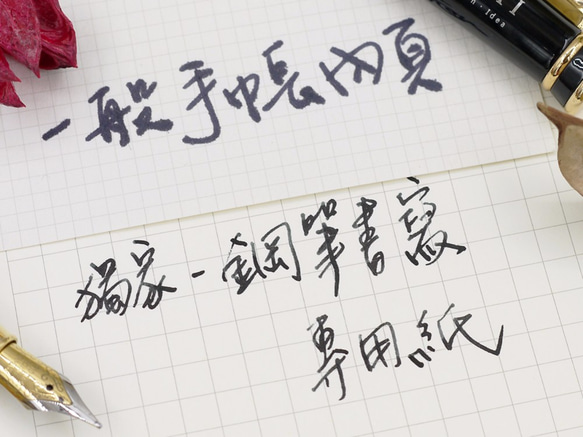 一般手帳內頁
獨家-鋼筆書寫
專用紙
Idea